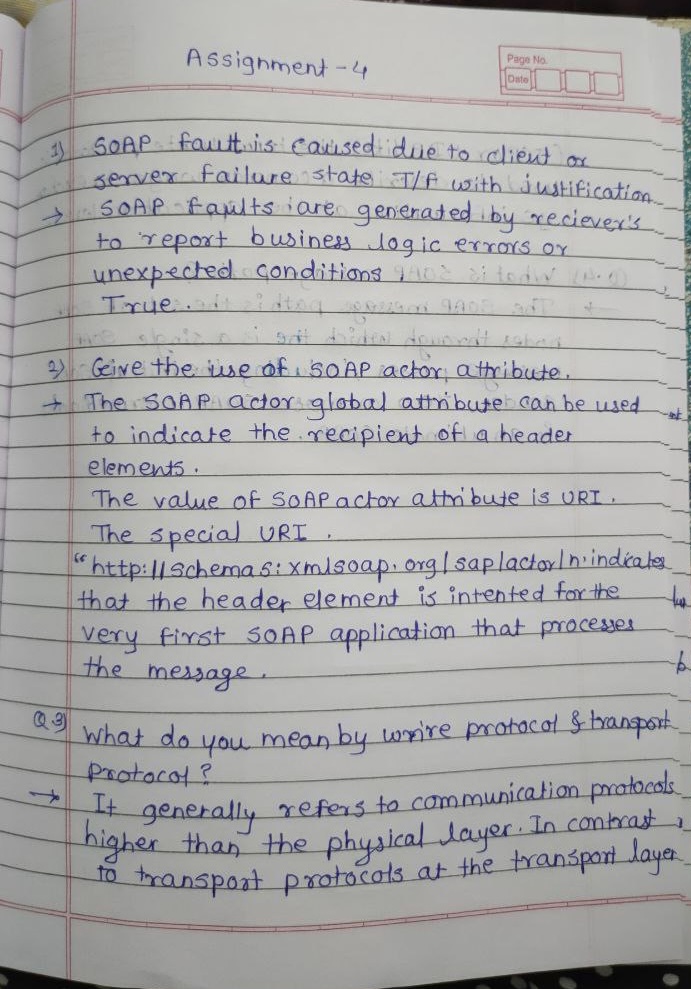 Assignment - 4
Page No.
Date
1) SOAP fault is caused due to client or
server failure state T/F with justification
→ SOAP faults are generated by reciever's
to report business logic errors or
unexpected conditions.
True.
2) Give the use of SOAP actor attribute.
→ The SOAP actor global attribute can be used
to indicate the recipient of a header
elements.
The value of SOAP actor attribute is URI.
The special URI.
"http://schemas:xmlsoap.org/sap/actor/n.indicates
that the header element is intented for the
very first SOAP application that processes
the message.
Q 3) What do you mean by wrire protocol & transport
Protocol?
→ It generally refers to communication protocols
higher than the physical layer. In contrast,
to transport protocols at the transport layer